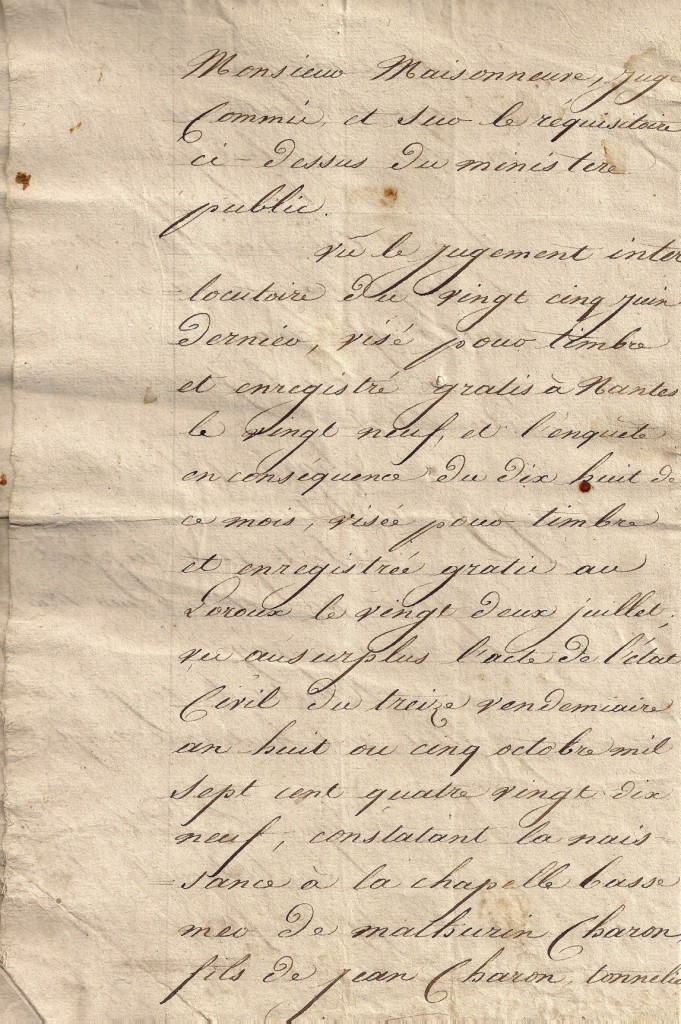 Monsieur Maisonneuve, juge
Commis, et sur le réquisitoire
ci-dessus du ministere
public.
vu le jugement inter
locutoire du vingt cinq juin
dernier, visé pour timbre
et enregistré gratis à Nantes
le vingt neuf, et l'enquète
en conséquence du dix huit de
ce mois, visée pour timbre
et enregistrée gratis au
Loroux le vingt deux juillet.
vu au surplus l'acte de l'état
Civil du treize vendemiaire
an huit ou cinq octobre mil
sept cent quatre vingt dix
neuf, constatant la nais-
sance à la chapelle basse
mer de mathurin Charon,
fils de jean Charon, tonnelie